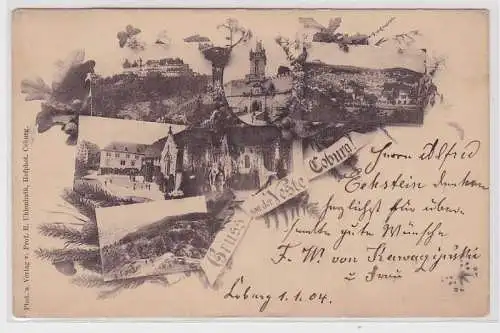 Phot. u. Verlag v. Prof. R. Uhlenhuth, Hofphot. Coburg.
Gruss von der Veste Coburg!
Herrn Alfred
Eckstein danken
herzlichst für über-
sandte gute Wünsche
F. W. von
u Frau
Coburg 1.1.04.